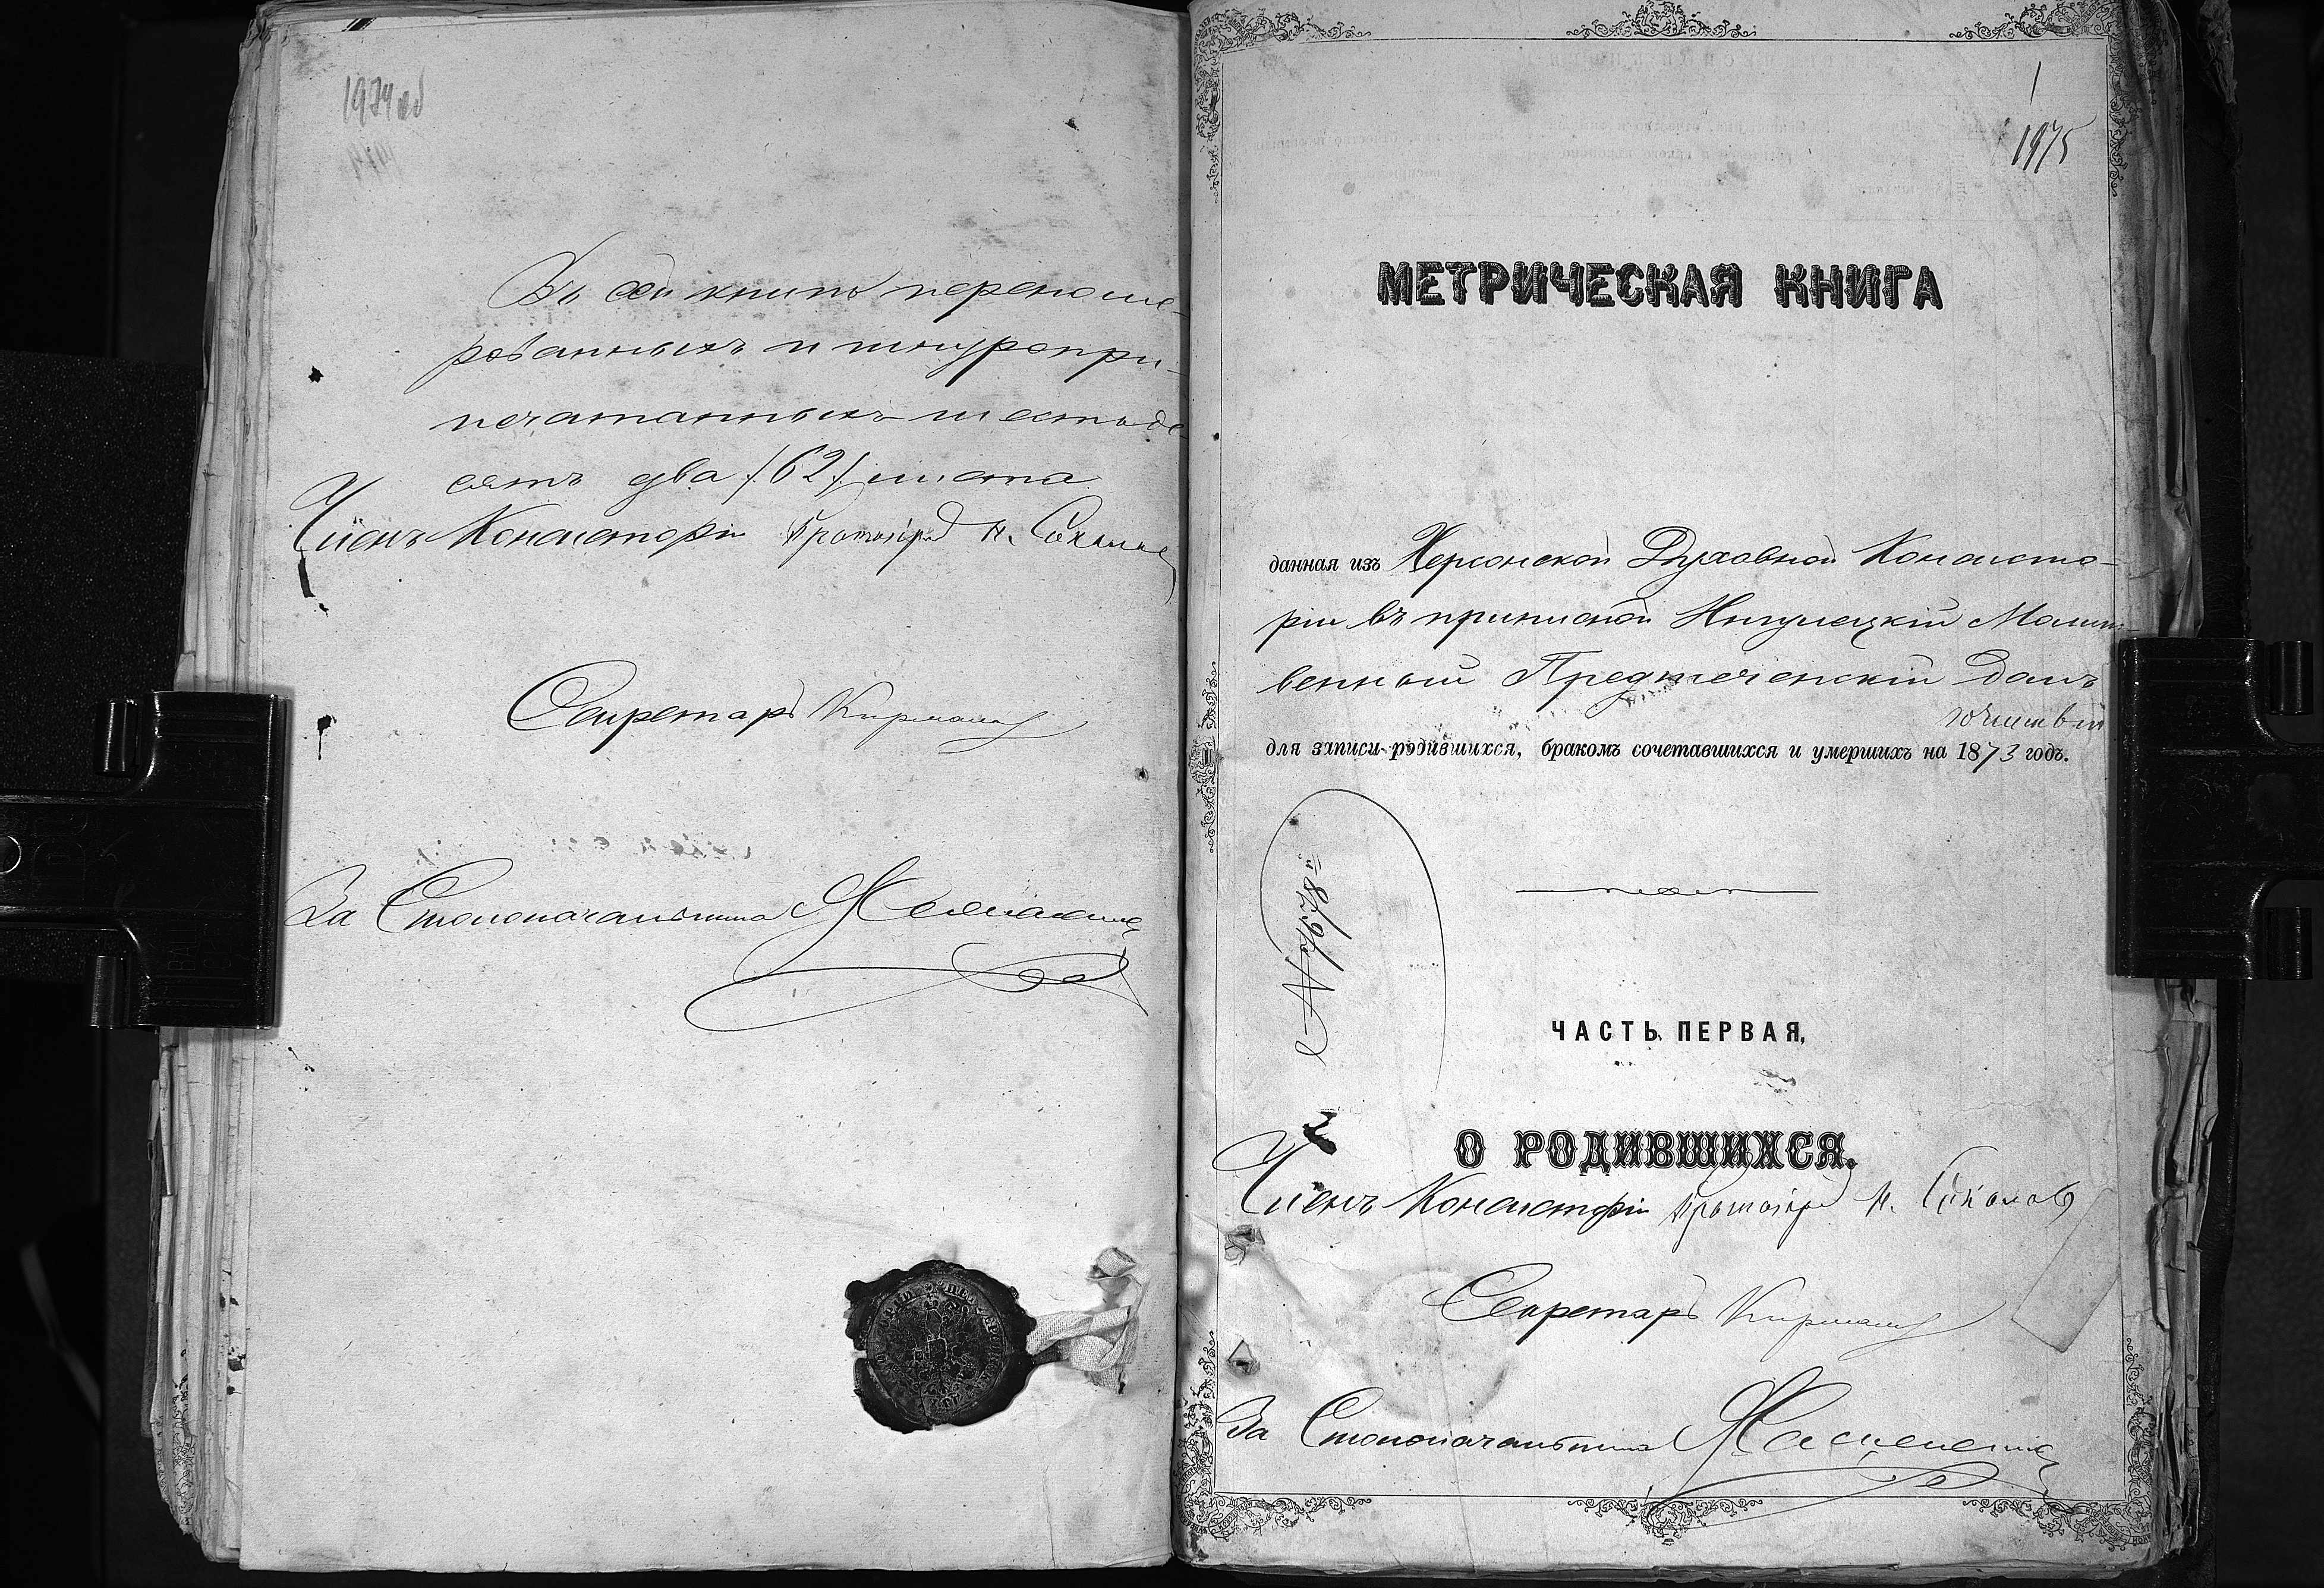 1974 об
Въ сей книгѣ перенуме-
рованныхъ и шнуропри-
печатанныхъ шестьде-
сятъ два /62/ листа
Членъ Консисторіи Протоіерей Н. Соколовъ
Секретарь
За Столоначальника
1
1975
МЕТРИЧЕСКАЯ КНИГА
данная изъ Херсонской Духовной Консисто-
ріи въ приписной Ингулецкій Молит-
венный Предтеченскій домъ
для записи родившихся, бракомъ сочетавшихся и умершихъ на 1873 годъ.
ЧАСТЬ ПЕРВАЯ,
О РОДИВШИХСЯ.
Членъ Консисторіи Протоіерей Н. Соколовъ
Секретарь
За Столоначальника